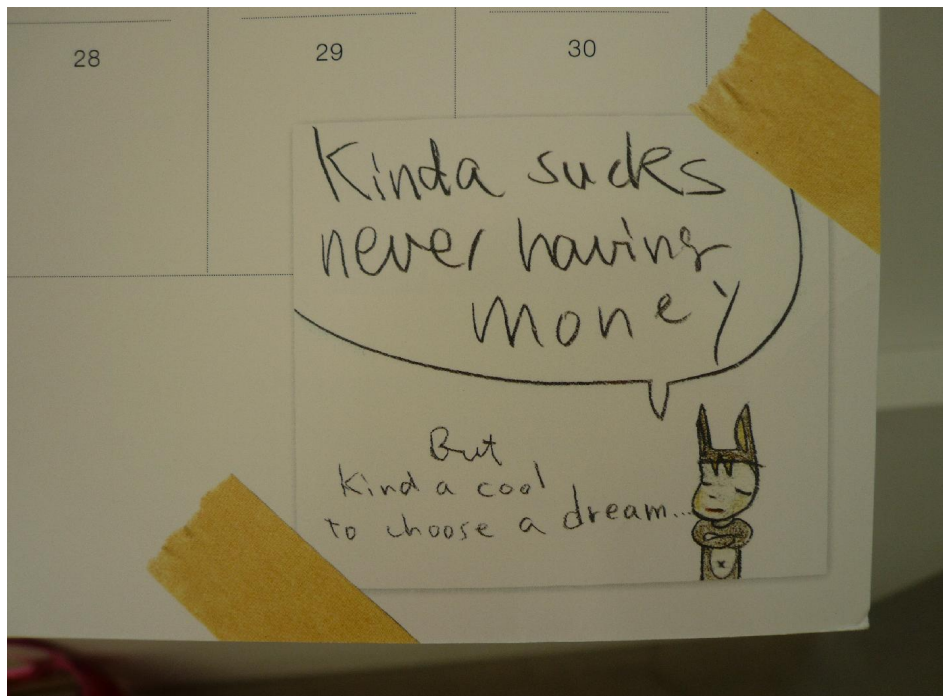 28 29 30
Kinda sucks
never having
money
But
Kinda cool
to choose a dream...